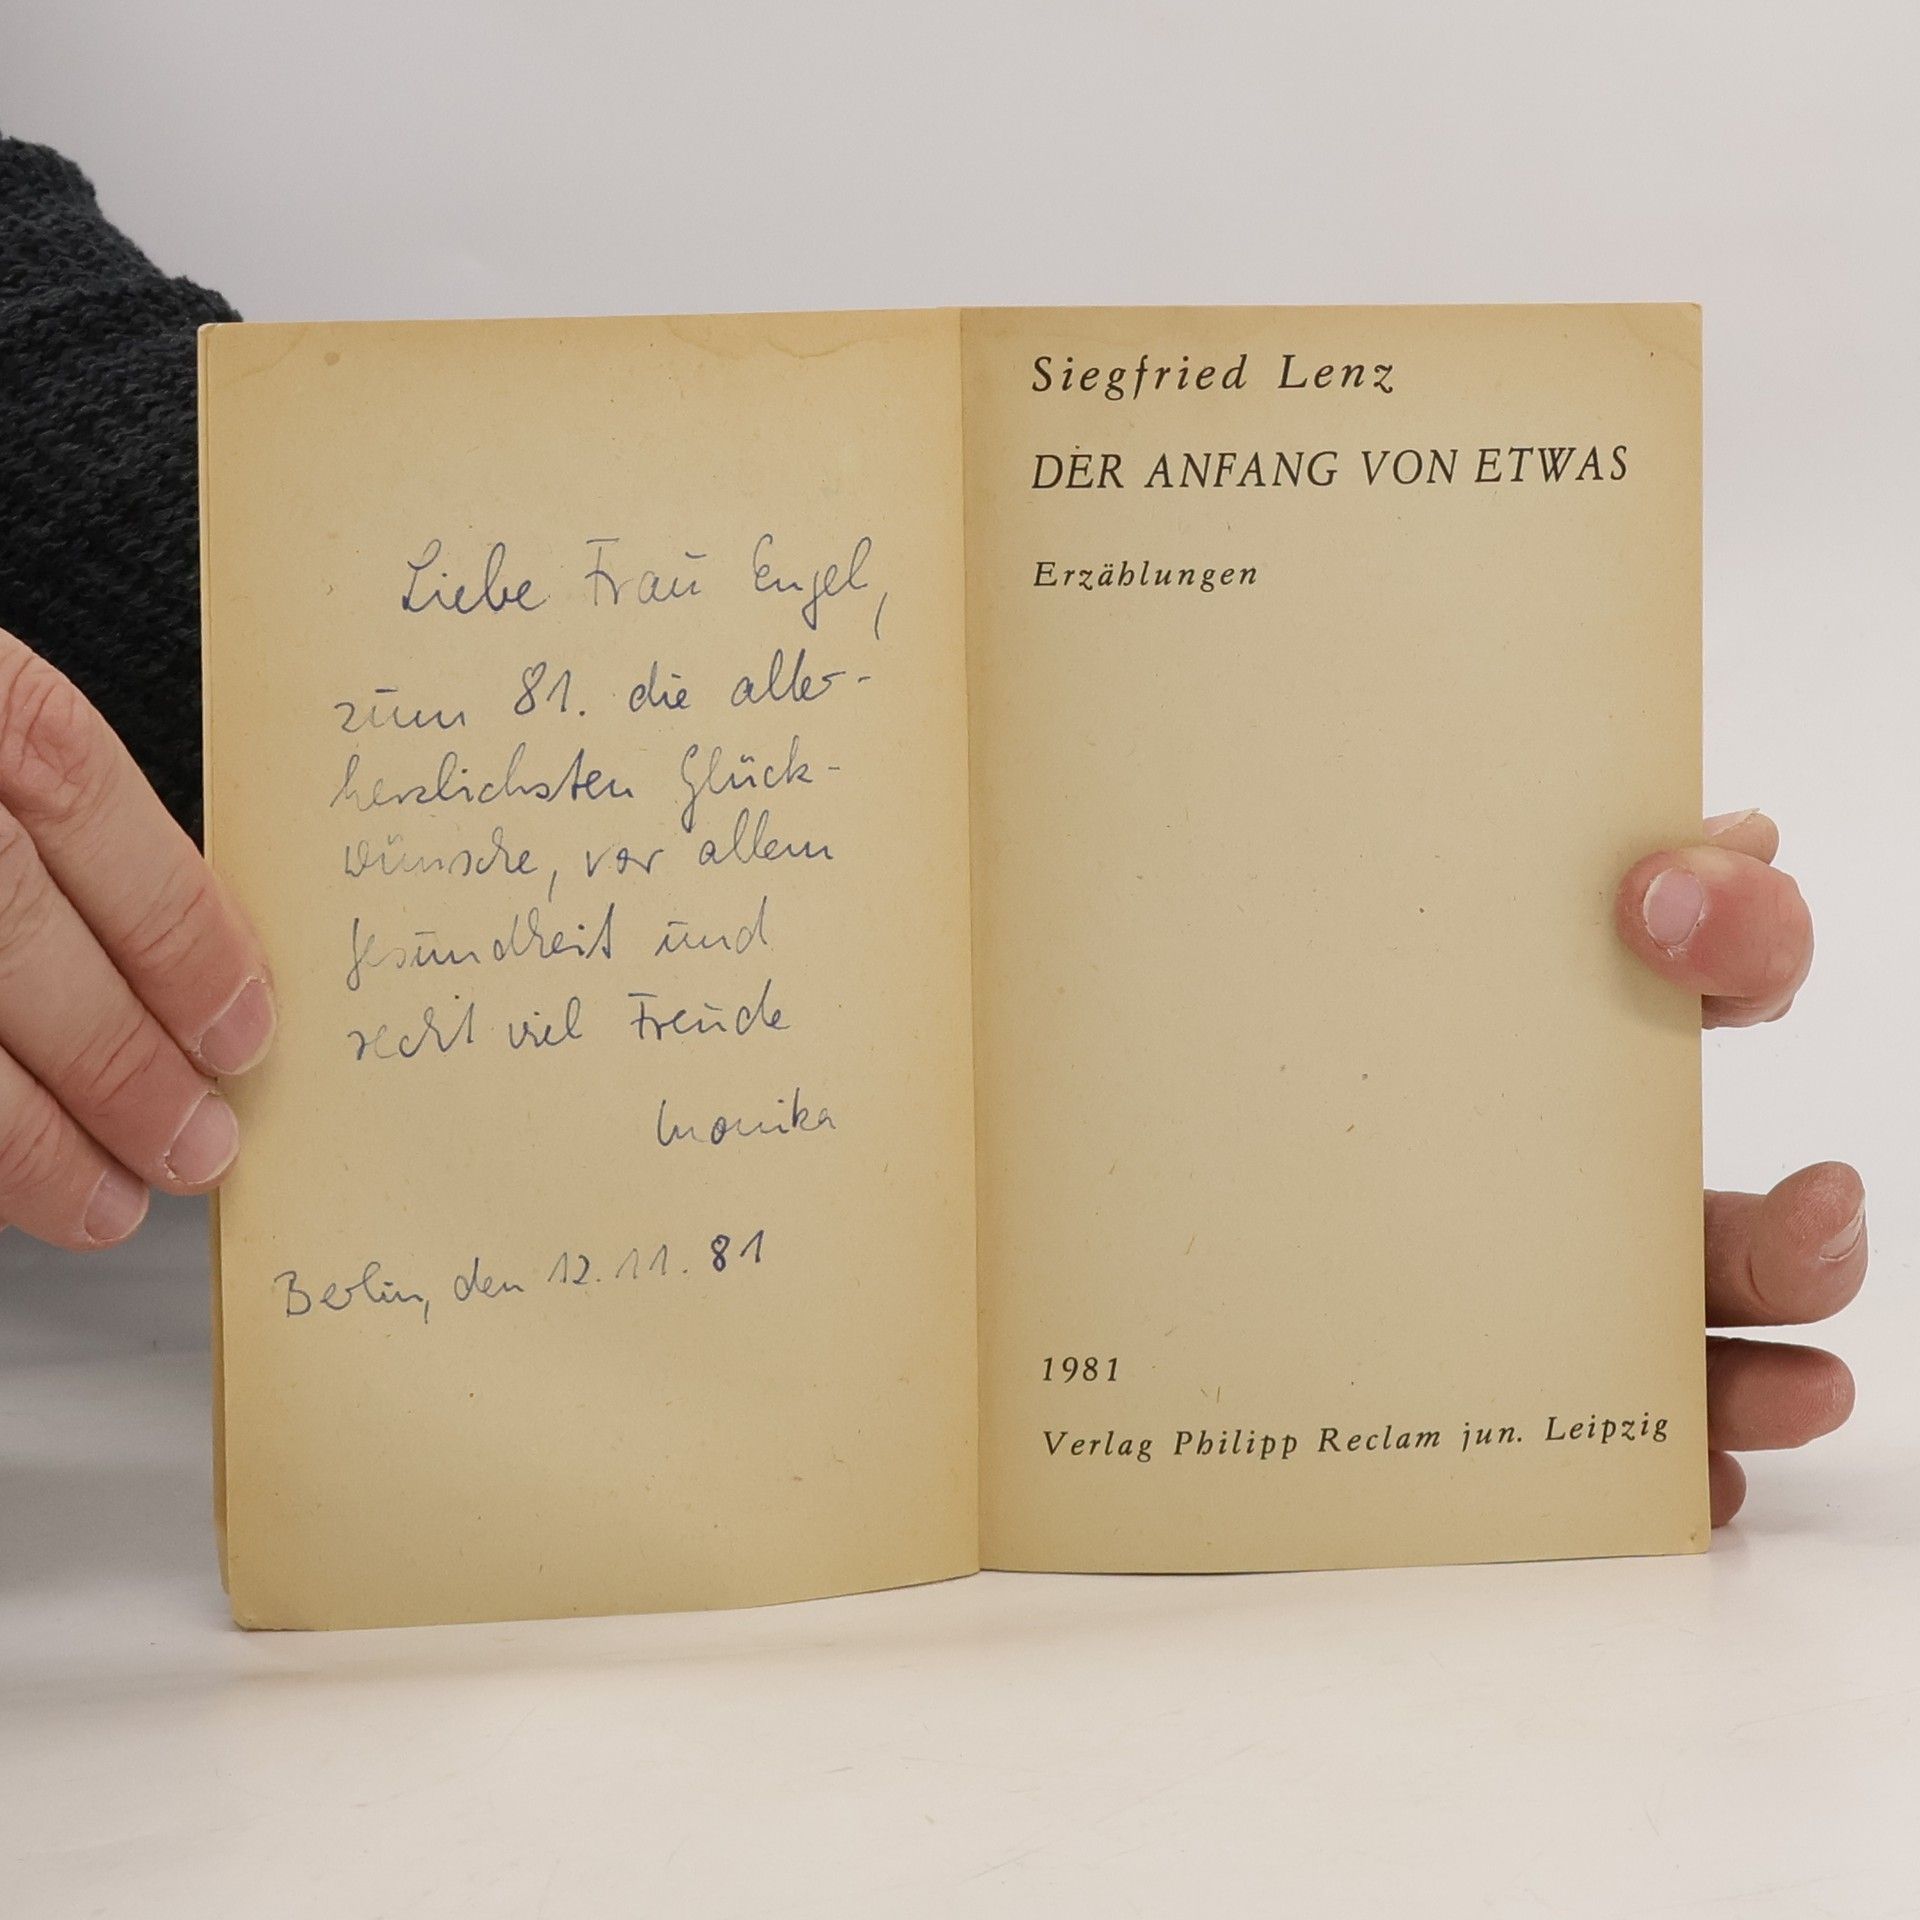 Liebe Frau Engel,
zum 81. die aller-
herzlichsten Glück-
wünsche, vor allem
Gesundheit und
recht viel Freude
Monika
Berlin, den 12.11.81
Siegfried Lenz
DER ANFANG VON ETWAS
Erzählungen
1981
Verlag Philipp Reclam jun. Leipzig